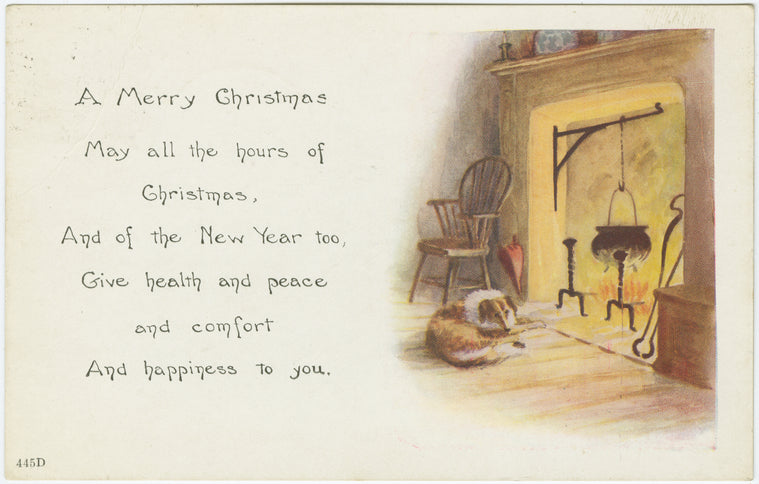 A Merry Christmas
May all the hours of
Christmas,
And of the New Year too,
Give health and peace
and comfort
And happiness to you.
445D